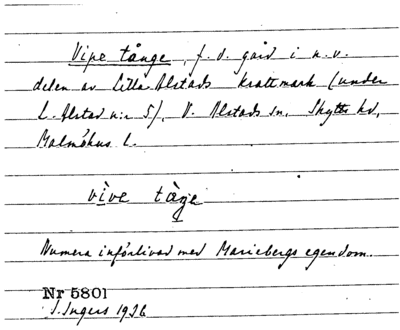 Vipe tånge, f. d. gård i n. v.
delen av Lilla Alstads krattmark (under
L. Alstad n:r 5), V. Alstads sn, Skytts hd,
Malmöhus l.
vìve tàŋe
Numera införlivad med Mariebergs egendom.
Nr 5801
I. Ingers 1926